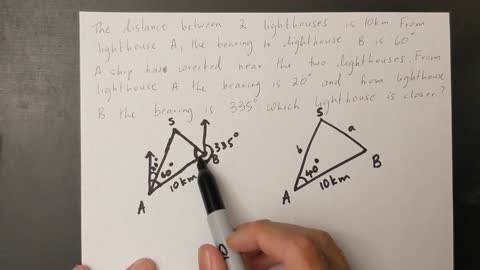 The distance between 2 lighthouses is 10km From
lighthouse A, the bearing to lighthouse B is 60°
A ship have wrecked near the two lighthouses. From
lighthouse A the bearing is 20° and from lighthouse
B the bearing is 335° which lighthouse is closer?
S
S
335°
a
60°
B
b
B
10km
40°
10km
A
A